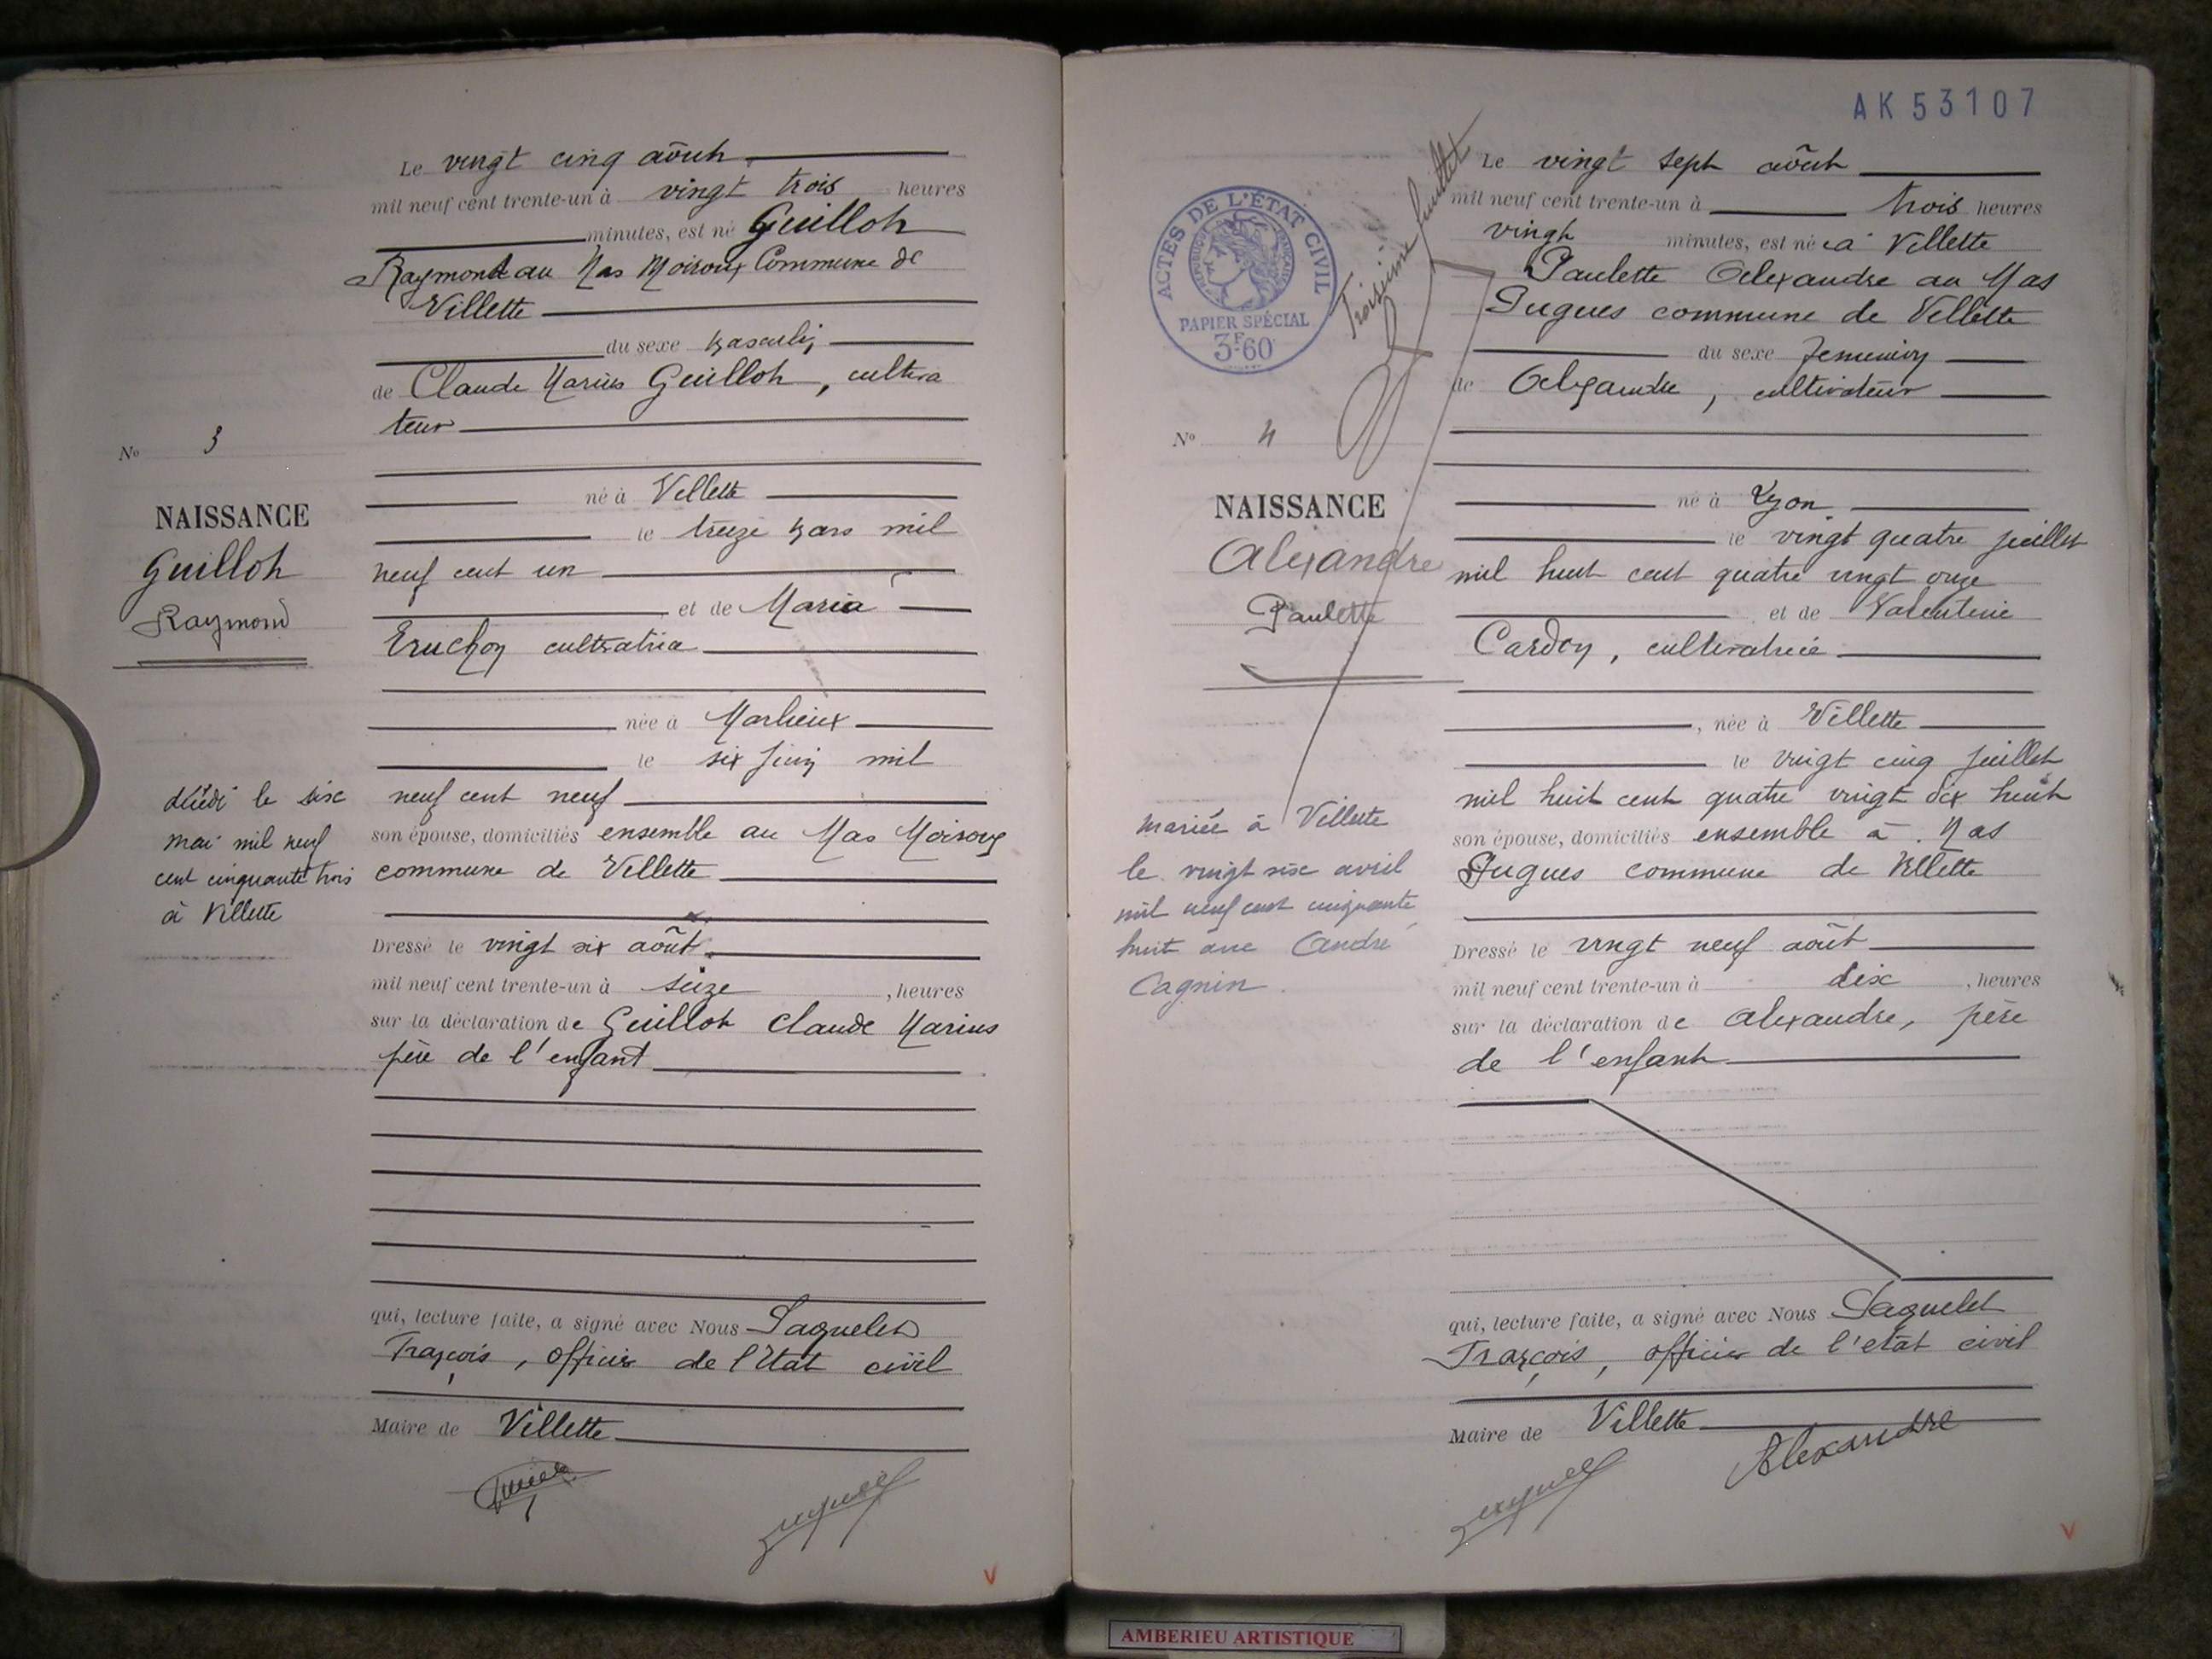 Le vingt cinq août
mil neuf cent trente-un à vingt trois heures
minutes, est né Guillot
Raymond au Mas Moiroux Commune de
Villette
du sexe masculin
de Claude Marius Guillot, cultiva
teur
No 3
né à Villette
NAISSANCE
le treize mars mil
Guillot
neuf cent un
Raymond
et de Maria
cultivatrice
née à Marlieux
le six juin mil
neuf cent neuf
décédé le six
mai mil neuf
cent cinquante trois
à Villette
son épouse, domiciliés ensemble au Mas Moiroux
commune de Villette
Dressé le vingt six août
mil neuf cent trente-un à seize, heures
sur la déclaration de Guillot Claude Marius
père de l'enfant
qui, lecture faite, a signé avec Nous
François, officier de l'Etat civil
Maire de Villette
AK 53107
ACTES DE L'ÉTAT CIVIL
RÉPUBLIQUE FRANÇAISE
PAPIER SPÉCIAL
3F60
Troisième feuillet
Le vingt sept août
mil neuf cent trente-un à trois heures
vingt minutes, est née à Villette
Paulette Alexandre au Mas
Pugues commune de Villette
du sexe féminin
de Alexandre, cultivateur
No 4
né à Lyon
NAISSANCE
le vingt quatre juillet
Alexandre
mil huit cent quatre vingt onze
Paulette
et de Valentine
Cardon, cultivatrice
, née à Villette
le vingt cinq juillet
mil huit cent quatre vingt dix huit
mariée à Villette
le vingt six avril
mil neuf cent cinquante
huit avec André
Cagnin.
son épouse, domiciliés ensemble à Mas
Pugues commune de Villette
Dressé le vingt neuf août
mil neuf cent trente-un à dix, heures
sur la déclaration de Alexandre, père
de l'enfant
qui, lecture faite, a signé avec Nous
François, officier de l'etat civil
Maire de Villette
Alexandre
V
V
AMBERIEU ARTISTIQUE